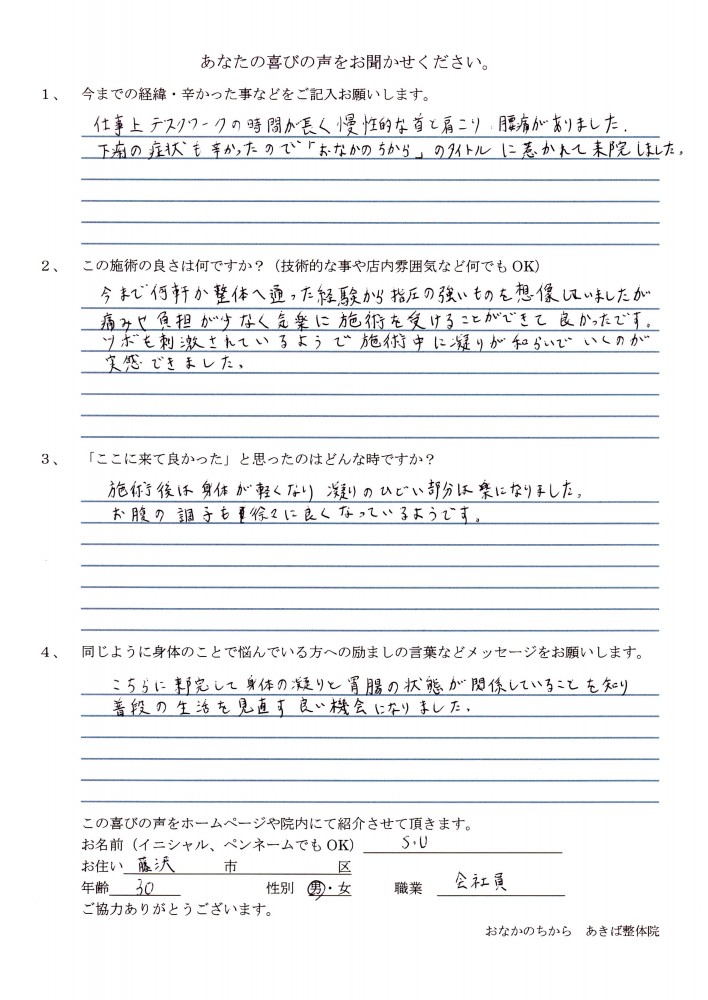 あなたの喜びの声をお聞かせください。
1、 今までの経緯・辛かった事などをご記入お願いします。
仕事上デスクワークの時間が長く慢性的な首と肩こり、腰痛がありました。
下痢の症状も辛かったので「おなかのちから」のタイトルに惹かれて来院しました。
2、 この施術の良さは何ですか？（技術的な事や店内雰囲気など何でもOK）
今まで何軒か整体へ通った経験から指圧の強いものを想像していましたが
痛みや負担が少なく気楽に施術を受けることができて良かったです。
ツボを刺激されているようで施術中に凝りが和らいでいくのが
実感できました。
3、 「ここに来て良かった」と思ったのはどんな時ですか？
施術後は身体が軽くなり凝りのひどい部分は楽になりました。
お腹の調子も徐々に良くなっているようです。
4、 同じように身体のことで悩んでいる方への励ましの言葉などメッセージをお願いします。
こちらに来院して身体の凝りと胃腸の状態が関係していることを知り
普段の生活を見直す良い機会になりました。
この喜びの声をホームページや院内にて紹介させて頂きます。
お名前（イニシャル、ペンネームでもOK） S.U
お住い 藤沢 市 区
年齢 30 性別 男・女 職業 会社員
ご協力ありがとうございます。
おなかのちから あきば整体院